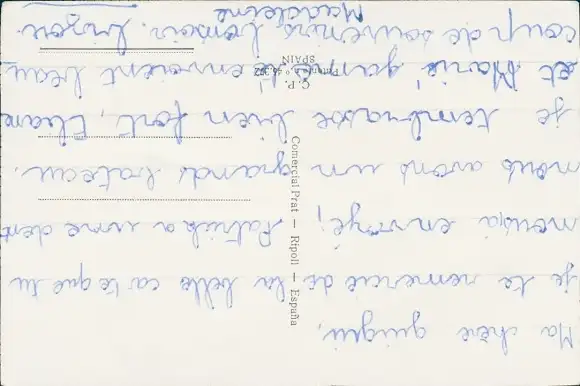 Ma chère guigui,
je te remercie de la belle carte que tu
nous a envoyé, Patrick a une dent
nous avons un grands bateau.
je t'embrasse bien fort, Eliane
et Marie t'envoient beau
coup de souvenirs
Madeleine
C. P.
SPAIN
Comercial Prat — Ripoll — España